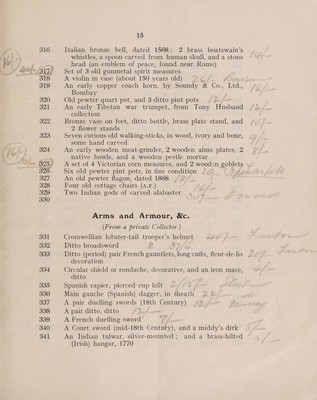 15
316 Italian bronze bell, dated 1568; 2 brass boatswain's
whistles, a spoon carved from human skull, and a stone
head (an emblem of peace, found near Rome) 14/-
16/- 317 Set of 3 old gunmetal spirit measures
318 A violin in case (about 150 years old)
319 An early copper coach horn, by Soundy & Co., Ltd., 16/-
Bombay
320 Old pewter quart pot, and 3 ditto pint pots 12/-
321 An early Tibetan war trumpet, from Tony Husband 12/-
collection
322 Bronze vase on feet, ditto bottle, brass plate stand, and 10/-
2 flower stands
323 Seven curious old walking-sticks, in wood, ivory and bone, 9/-
some hand carved
16/- 324 An early wooden meat-grinder, 2 wooden alms plates, 2 8/-
native bowls, and a wooden pestle mortar
325 A set of 4 Victorian corn measures, and 2 wooden goblets
326 Six old pewter pint pots, in fine condition 20/-
327 An old pewter flagon, dated 1868
328 Four old cottage chairs (A.F.) 16/-
329 Two Indian gods of carved alabaster 30/-
330
Arms and Armour, &c.
(From a private Collector)
331 Cromwellian lobster-tail trooper's helmet 40/-
332 Ditto broadsword 37/6
333 Ditto (period) pair French gauntlets, long cuffs, fleur-de-lis 20/-
decoration
334 Circular shield or rondache, decorative, and an iron mace, 6/-
ditto
335 Spanish rapier, pierced cup hilt 2/15/-
336 Main gauche (Spanish) dagger, in sheath 22/-
337 A pair duelling swords (18th Century) 12/- Murray
338 A pair ditto, ditto 12/-
339 A French duelling sword 7/-
340 A Court sword (mid-18th Century), and a middy's dirk 5/-
341 An Indian tulwar, silver-mounted; and a brass-hilted 5/-
(Irish) hangar, 1770